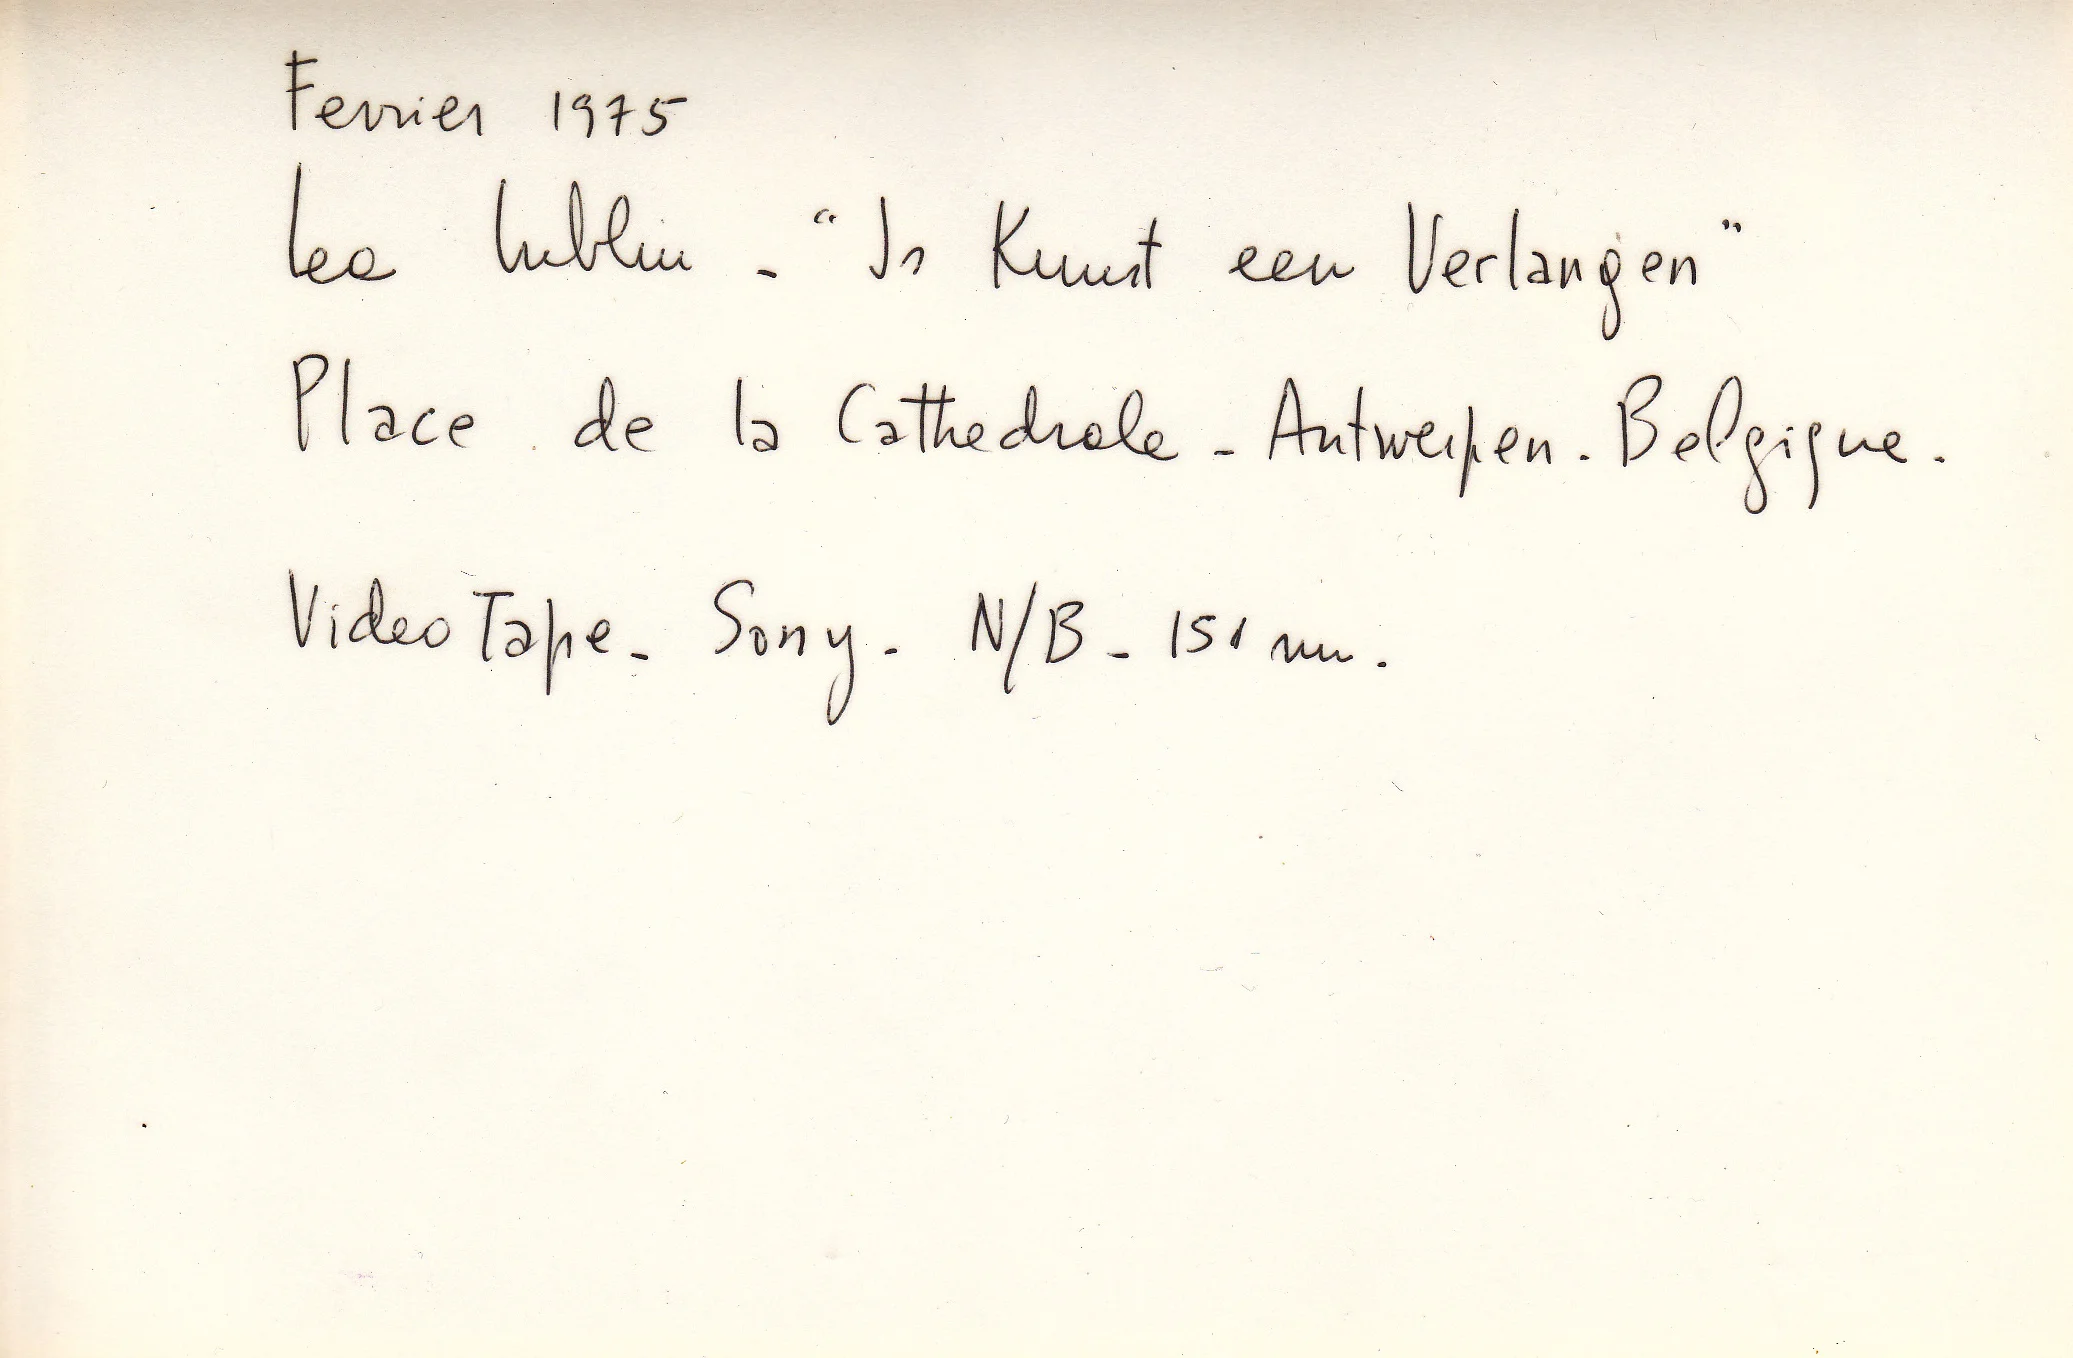 Fevrier 1975
Lea Lublin - "Is Kunst een Verlangen"
Place de la Cathedrale - Antwerpen. Belgique.
Video Tape - Sony - N/B - 15' mn.